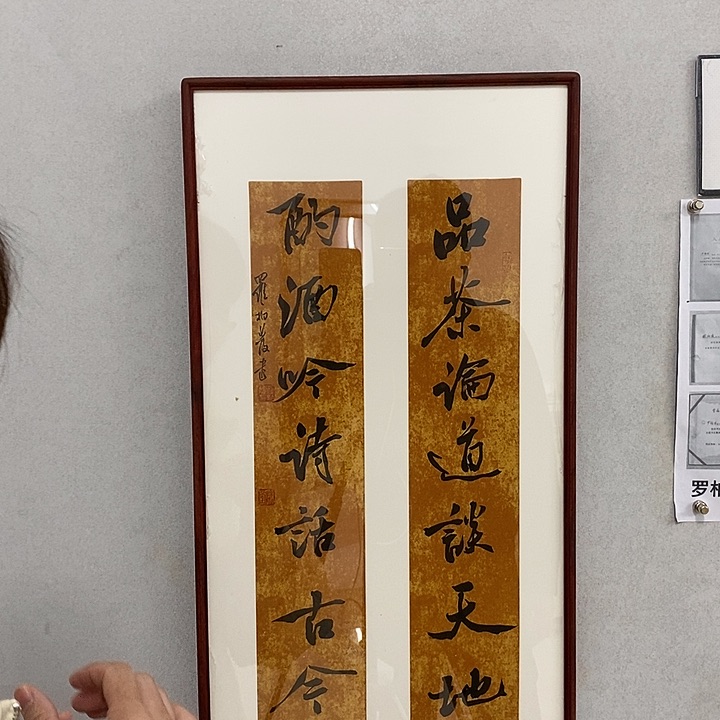 品茶論道談天地
酌酒吟詩話古今
羅柏茂書
罗柏